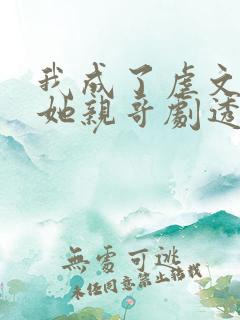 我成了虐文
她親哥劇透
無處可逃
未經同意禁止轉載